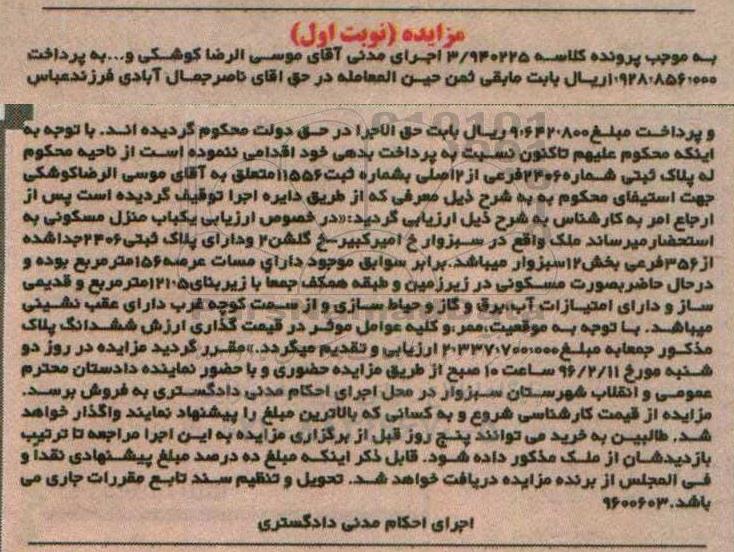 مزایده (نوبت اول)
به موجب پرونده کلاسه ۳/۹۴۰۲۲۵ اجرای مدنی آقای موسی الرضا کوشکی و...به پرداخت
۱۰۹۲۸۰۸۵۶۰۰۰ریال بابت مابقی ثمن حین المعامله در حق اقای ناصرجمال آبادی فرزندعباس
و پرداخت مبلغ۹۰۶۴۲۰۸۰۰ ریال بابت حق الاجرا در حق دولت محکوم گردیده اند. با توجه به
اینکه محکوم علیهم تاکنون نسبت به پرداخت بدهی خود اقدامی ننموده است از ناحیه محکوم
له پلاک ثبتی شماره۲۴۰۶فرعی از۱۲اصلی بشماره ثبت۱۱۵۵۶متعلق به آقای موسی الرضاکوشکی
جهت استیفای محکوم به به شرح ذیل معرفی که از طریق دایره اجرا توقیف گردیده است پس از
ارجاع امر به کارشناس به شرح ذیل ارزیابی گردید:«در خصوص ارزیابی یکباب منزل مسکونی به
استحضارمیرساند ملک واقع در سبزوار خ امیرکبیر-خ گلشن۲ ودارای پلاک ثبتی۲۴۰۶جداشده
از۳۵۶فرعی بخش۱۲سبزوار میباشد.برابر سوابق موجود دارای مسات عرصه۱۵۶مترمربع بوده و
درحال حاضربصورت مسکونی در زیرزمین و طبقه همکف جمعا با زیربنای۱۲۱۰۵مترمربع و قدیمی
ساز و دارای امتیازات آب،برق و گاز و حیاط سازی و از سمت کوچه غرب دارای عقب نشینی
میباشد. با توجه به موقعیت،ممر،و کلیه عوامل موثر در قیمت گذاری ارزش ششدانگ پلاک
مذکور جمعابه مبلغ۲۰۳۳۷۰۷۰۰۰۰۰۰ ارزیابی و تقدیم میگردد.»مقرر گردید مزایده در روز دو
شنبه مورخ ۹۶/۲/۱۱ ساعت ۱۰ صبح از طریق مزایده حضوری و با حضور نماینده دادستان محترم
عمومی و انقلاب شهرستان سبزوار در محل اجرای احکام مدنی دادگستری به فروش برسد.
مزایده از قیمت کارشناسی شروع و به کسانی که بالاترین مبلغ را پیشنهاد نمایند واگذار خواهد
شد. طالبین به خرید می توانند پنج روز قبل از برگزاری مزایده به این اجرا مراجعه تا ترتیب
بازدیدشان از ملک مذکور داده شود. قابل ذکر اینکه مبلغ ده درصد مبلغ پیشنهادی نقداً و
فی المجلس از برنده مزایده دریافت خواهد شد. تحویل و تنظیم سند تابع مقررات جاری می
باشد.۹۶۰۰۶۰۳
اجرای احکام مدنی دادگستری